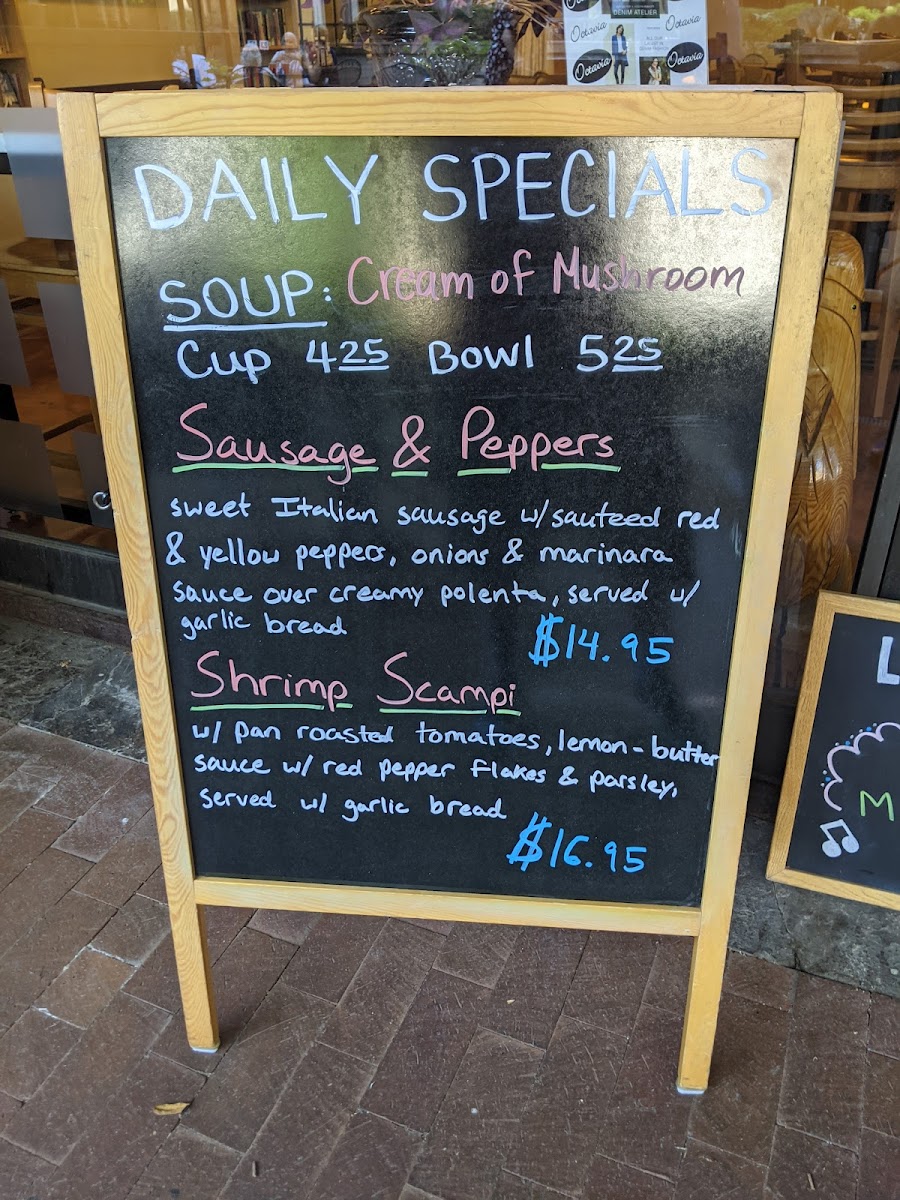 DENIM ATELIER
Octavia
Octavia
Octavia
Octavia
DAILY SPECIALS
SOUP: Cream of Mushroom
Cup 425 Bowl 525
Sausage & Peppers
sweet Italian sausage w/ sauteed red
& yellow peppers, onions & marinara
sauce over creamy polenta, served w/
garlic bread
$14.95
Shrimp Scampi
w/ pan roasted tomatoes, lemon-butter
sauce w/ red pepper flakes & parsley,
served w/ garlic bread
$16.95
L
M